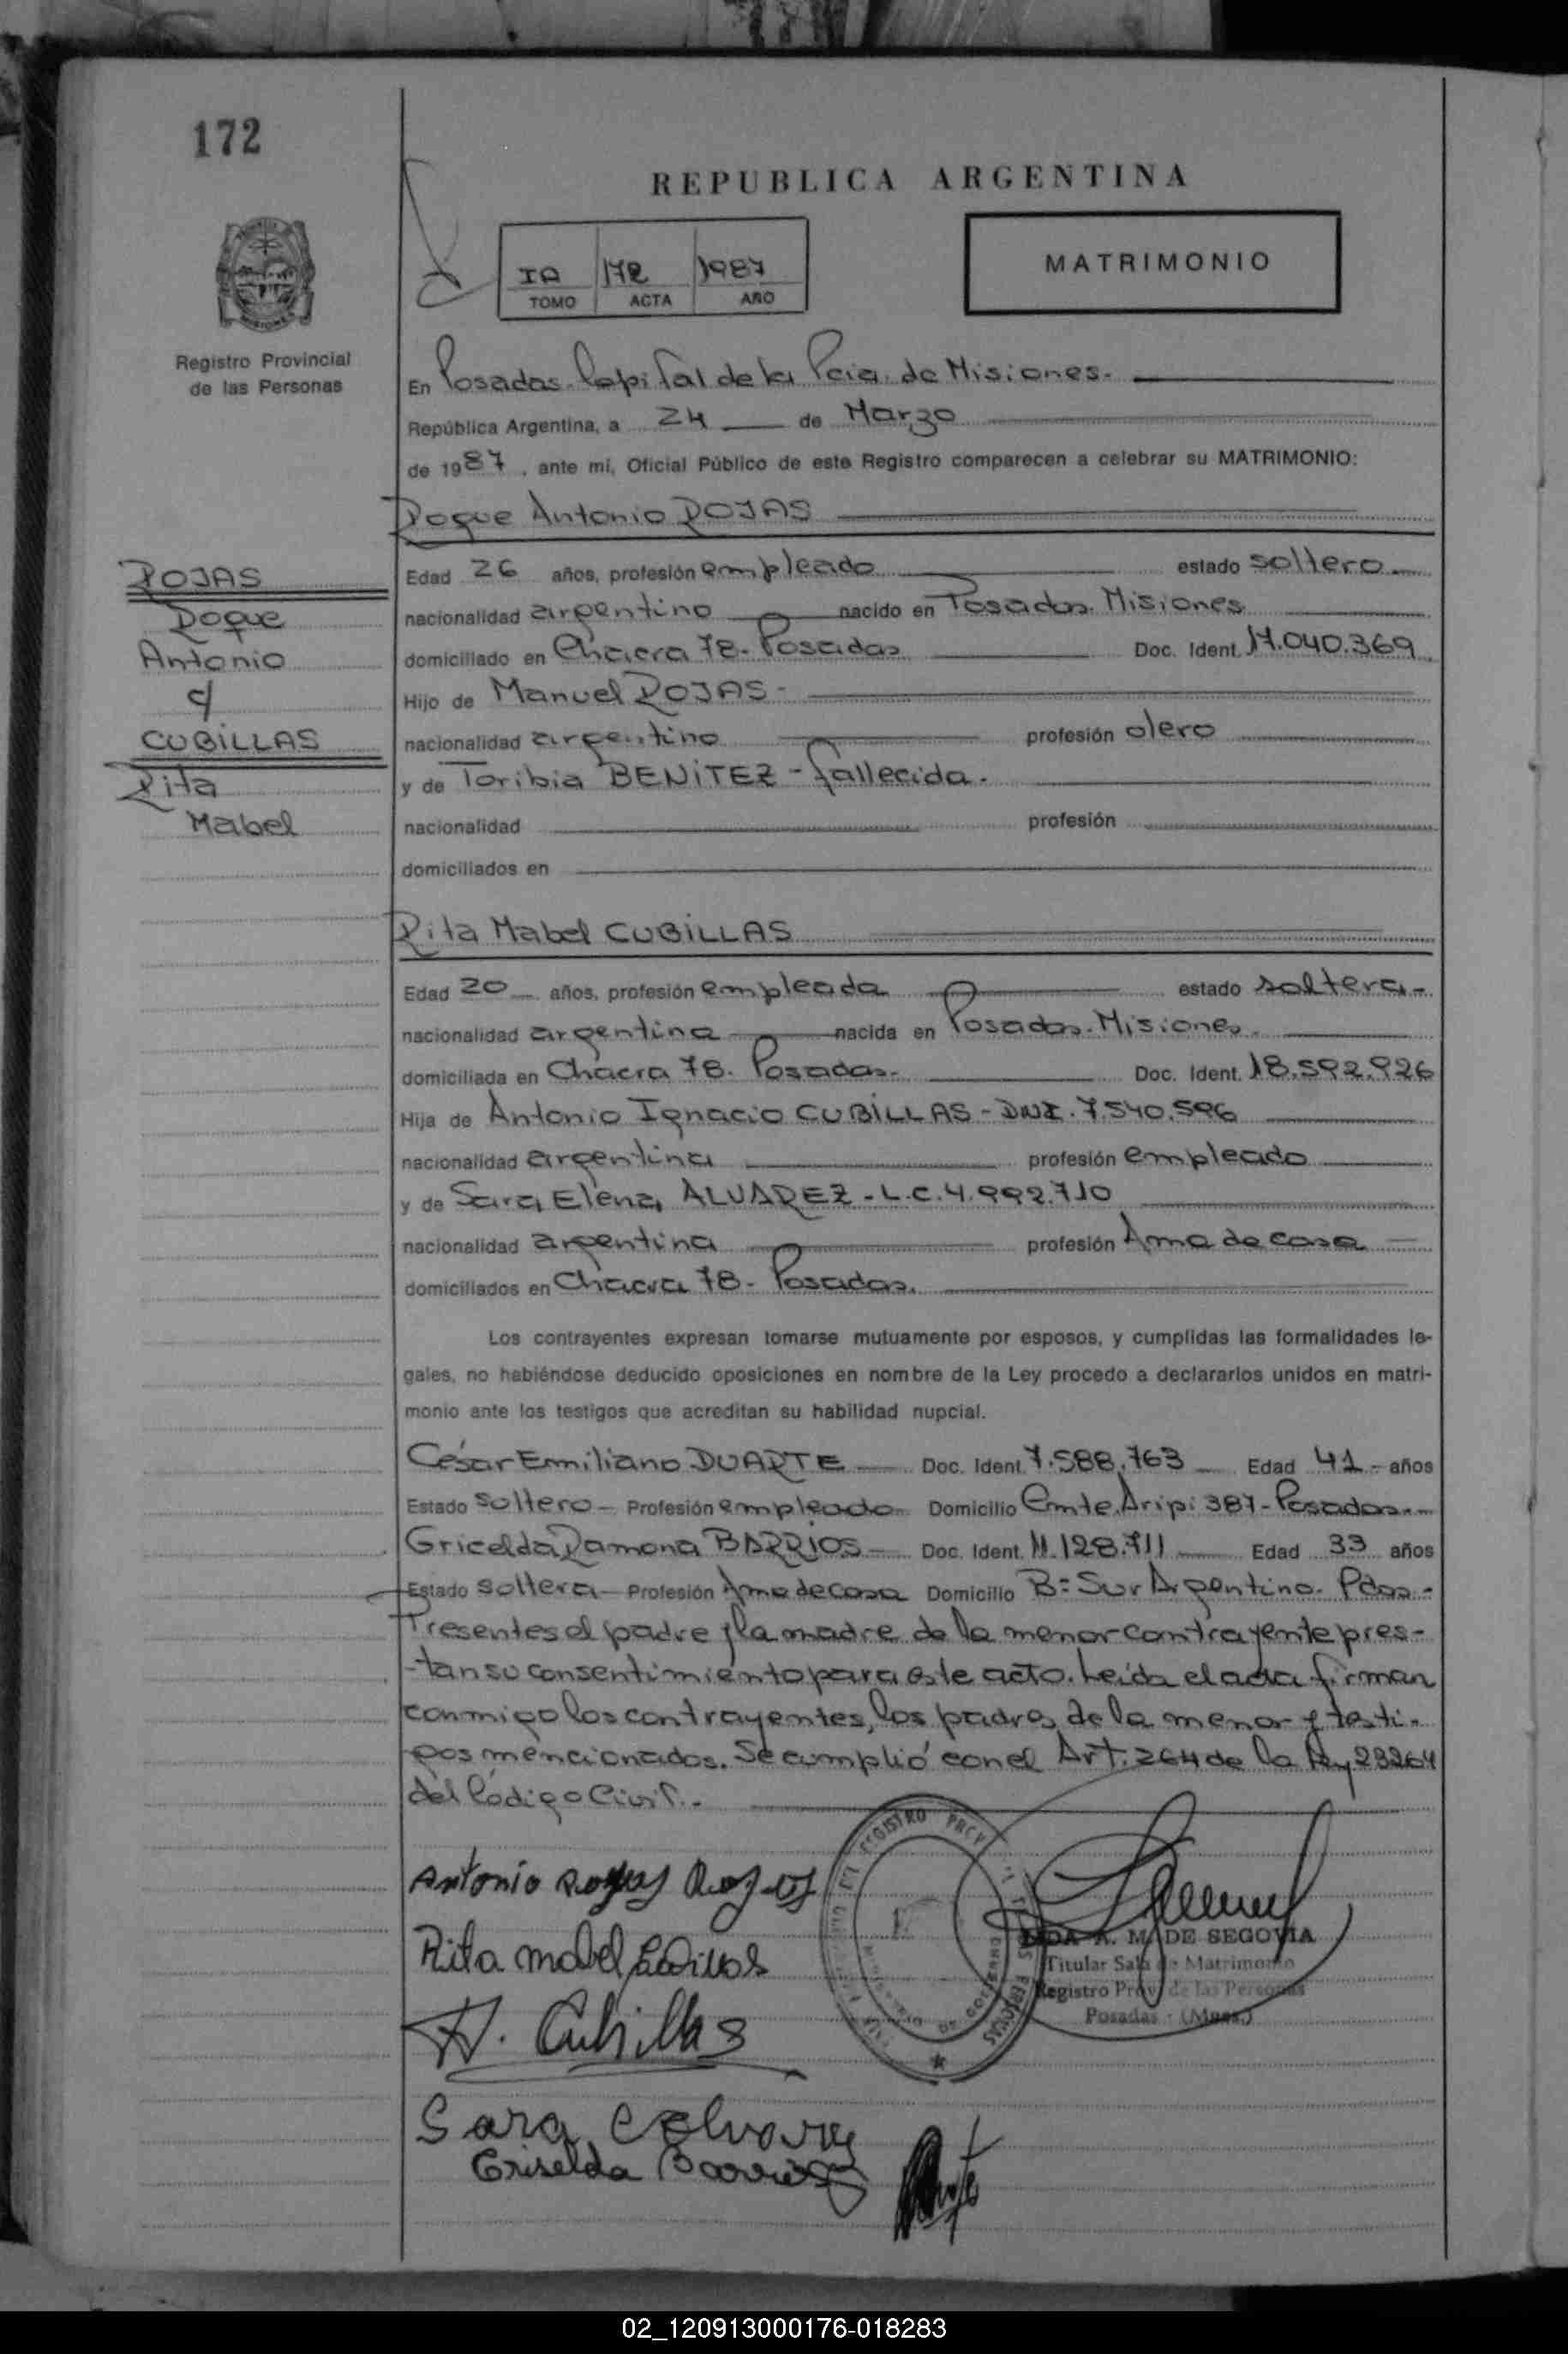 172
REPUBLICA ARGENTINA
IA 172 1987
TOMO ACTA AÑO
MATRIMONIO
Registro Provincial
de las Personas
En Posadas. Capital de la Pcia. de Misiones.
República Argentina, a 24 de Marzo
de 1987, ante mí, Oficial Público de este Registro comparecen a celebrar su MATRIMONIO:
Roque Antonio ROJAS
ROJAS
Roque
Antonio
c/
CUBILLAS
Rita
Mabel
Edad 26 años, profesión empleado estado soltero
nacionalidad argentino nacido en Posadas. Misiones
domiciliado en Chacra 78. Posadas Doc. Ident. 14.040.369
Hijo de Manuel ROJAS-
nacionalidad argentino profesión olero
y de Toribia BENITEZ - fallecida.
nacionalidad profesión
domiciliados en
Rita Mabel CUBILLAS
Edad 20 años, profesión empleada estado soltera-
nacionalidad argentina nacida en Posadas. Misiones.
domiciliada en Chacra 78. Posadas. Doc. Ident. 18.592.926
Hija de Antonio Ignacio CUBILLAS - DNI. 7.540.596
nacionalidad argentina profesión empleado
y de Sara Elena ALVAREZ - L.C. 4.992.710
nacionalidad argentina profesión Ama de casa
domiciliados en Chacra 78- Posadas.
Los contrayentes expresan tomarse mutuamente por esposos, y cumplidas las formalidades le-
gales, no habiéndose deducido oposiciones en nombre de la Ley procedo a declararlos unidos en matri-
monio ante los testigos que acreditan su habilidad nupcial.
César Emiliano DUARTE Doc. Ident. 7.588.763 Edad 41 años
Estado soltero Profesión empleado Domicilio Cmte. 387- Posadas.
Gricelda Ramona BARRIOS Doc. Ident. 11.128.711 Edad 33 años
Estado soltera Profesión Ama de casa Domicilio B= Sur Argentino. Pdas.-
Presentes el padre y la madre de la menor contrayente pres-
-tan su consentimiento para este acto. Leída el acta firman
conmigo los contrayentes, los padres de la menor y testi-
gos mencionados. Se cumplió con el Art. 264 de la ley 23264
del Código Civil.-
Antonio Roque Rojas
Rita Mabel Cubillas
A. Cubillas
Sara E Alvarez
Griselda Barrios
REGISTRO
A. M. DE SEGOVIA
Titular Sala de Matrimonio
Registro Prov. de las Personas
Posadas - (Mnes.)
02_120913000176-018283